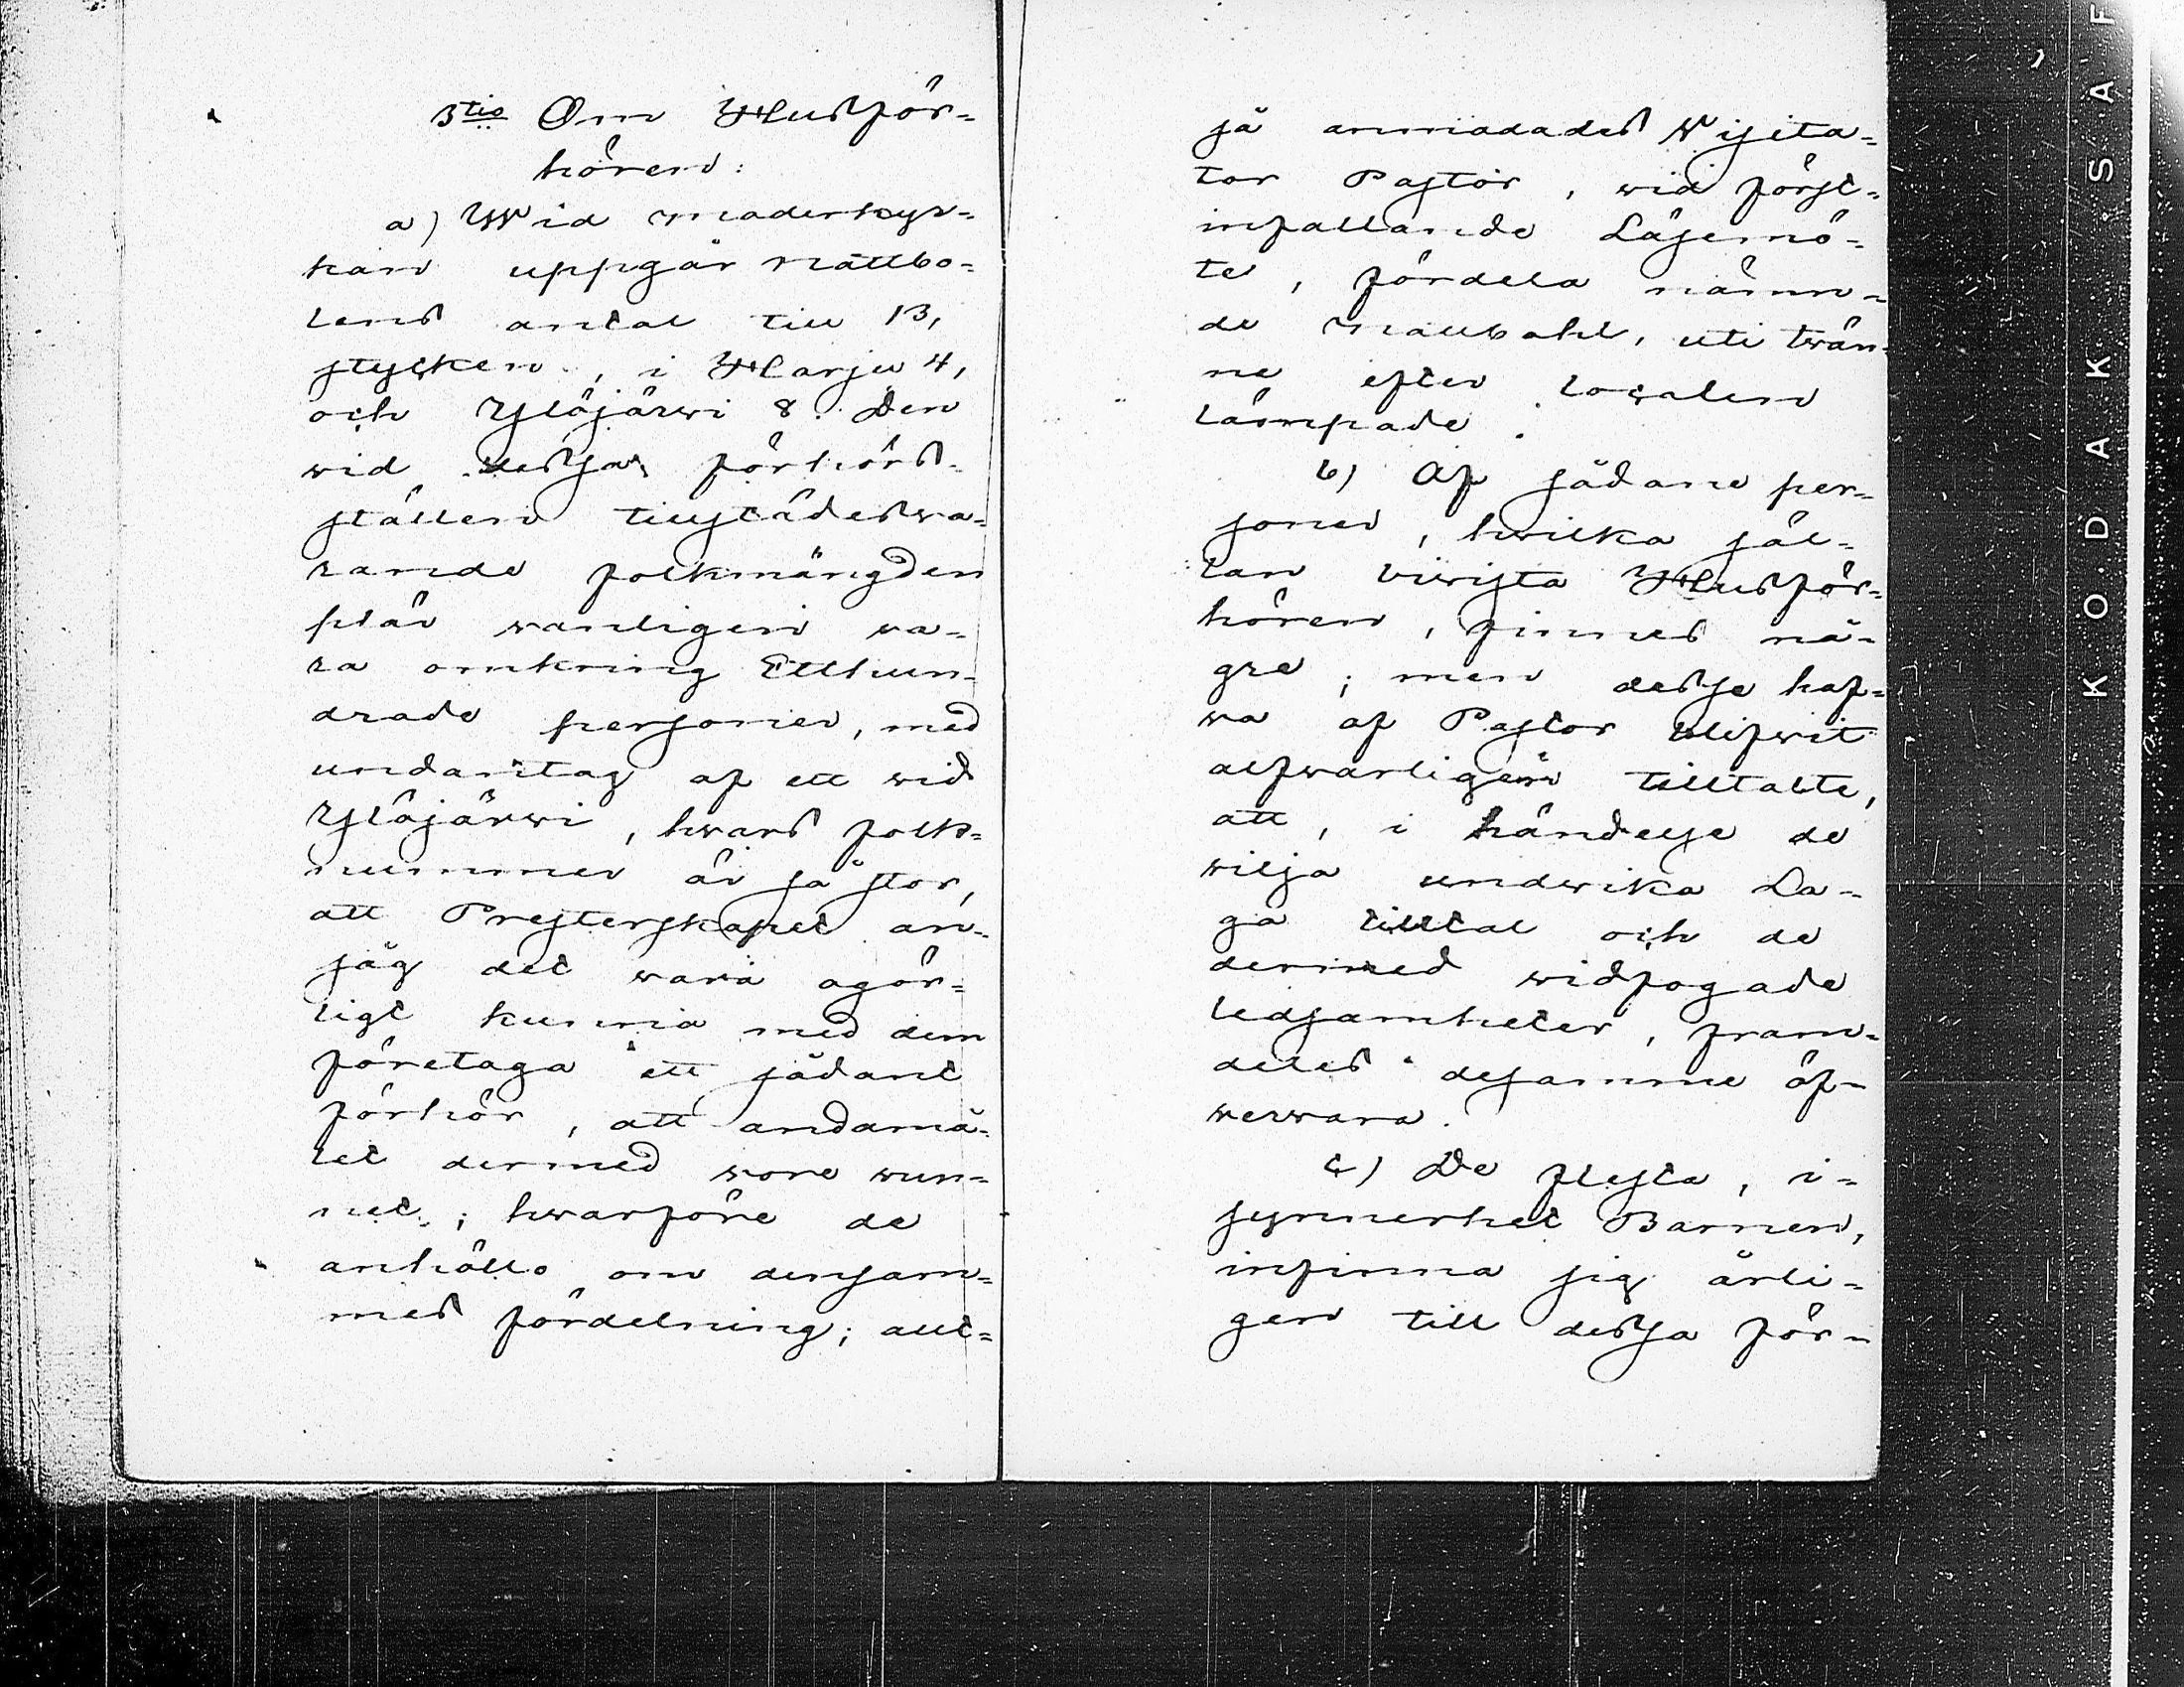 3tio Om Husför-
hören:
a) Wid moderkyr-
kan uppgår mattbo-
lens antal till 13,
stycken, i Harju 4,
och Ylöjärwi 8. Den
wid dessa förhörs-
ställen tillstädeswa-
rande folkmängden
plär wanligen va-
ra omkring Etthun-
drade personer, med
undantag af ett wid
Ylöjärwi, hwars folk-
nummer är så stor,
att Presterskapet an-
såg det wara ogör-
ligt kunna med dem
företaga ett sådant
förhör, att ändamå-
let dermed wore wun-
net; hwarföre de
anhöllo om densam-
mes fördelning; allt-
så anmodades Wisita-
tor Pastor, wid först-
infallande Läsemö-
te, fördela nämn-
de mattbohl, uti twän-
ne efter localen
lämpade.
b) Af sådane per-
soner, hwilka säl-
lan biwista Husför-
hören, finnes nå-
gre; men desse haf-
wa af Pastor blifwit
alfwarligen tilltalte,
att, i händelse de
wilja undwika La-
ga tilltal och de
dermed widfogade
ledsamheter, fram-
deles desamme öf-
werwara.
c) De flesta, i-
synnerhet Barnen,
infinna sig årli-
gen till dessa för-
KODAK SAF